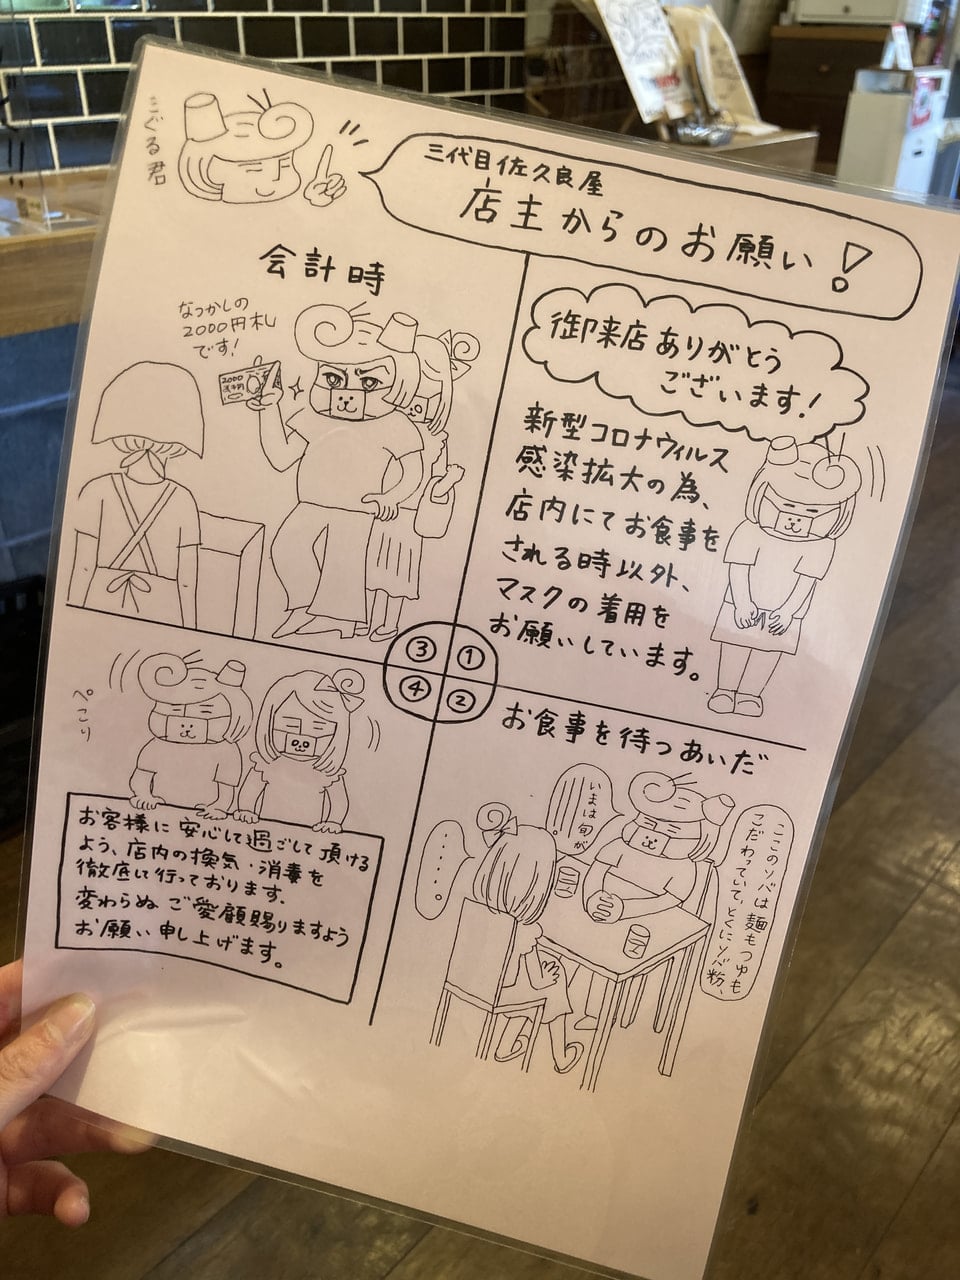 こぐる君
三代目佐久良屋
店主からのお願い!
御来店ありがとう
ございます!
新型コロナウィルス
感染拡大の為、
店内にてお食事を
される時以外、
マスクの着用を
お願いしています。
①
②
③
④
お食事を待つあいだ
ここのソバは麺もつゆも
こだわっていて、とくにソバ粉、
いまは旬が
・・・・。
会計時
なつかしの
2000円札
です!
2000
ぺこり
お客様に安心して過ごして頂ける
よう、店内の換気・消毒を
徹底して行っております。
変わらぬご愛顧賜りますよう
お願い申し上げます。